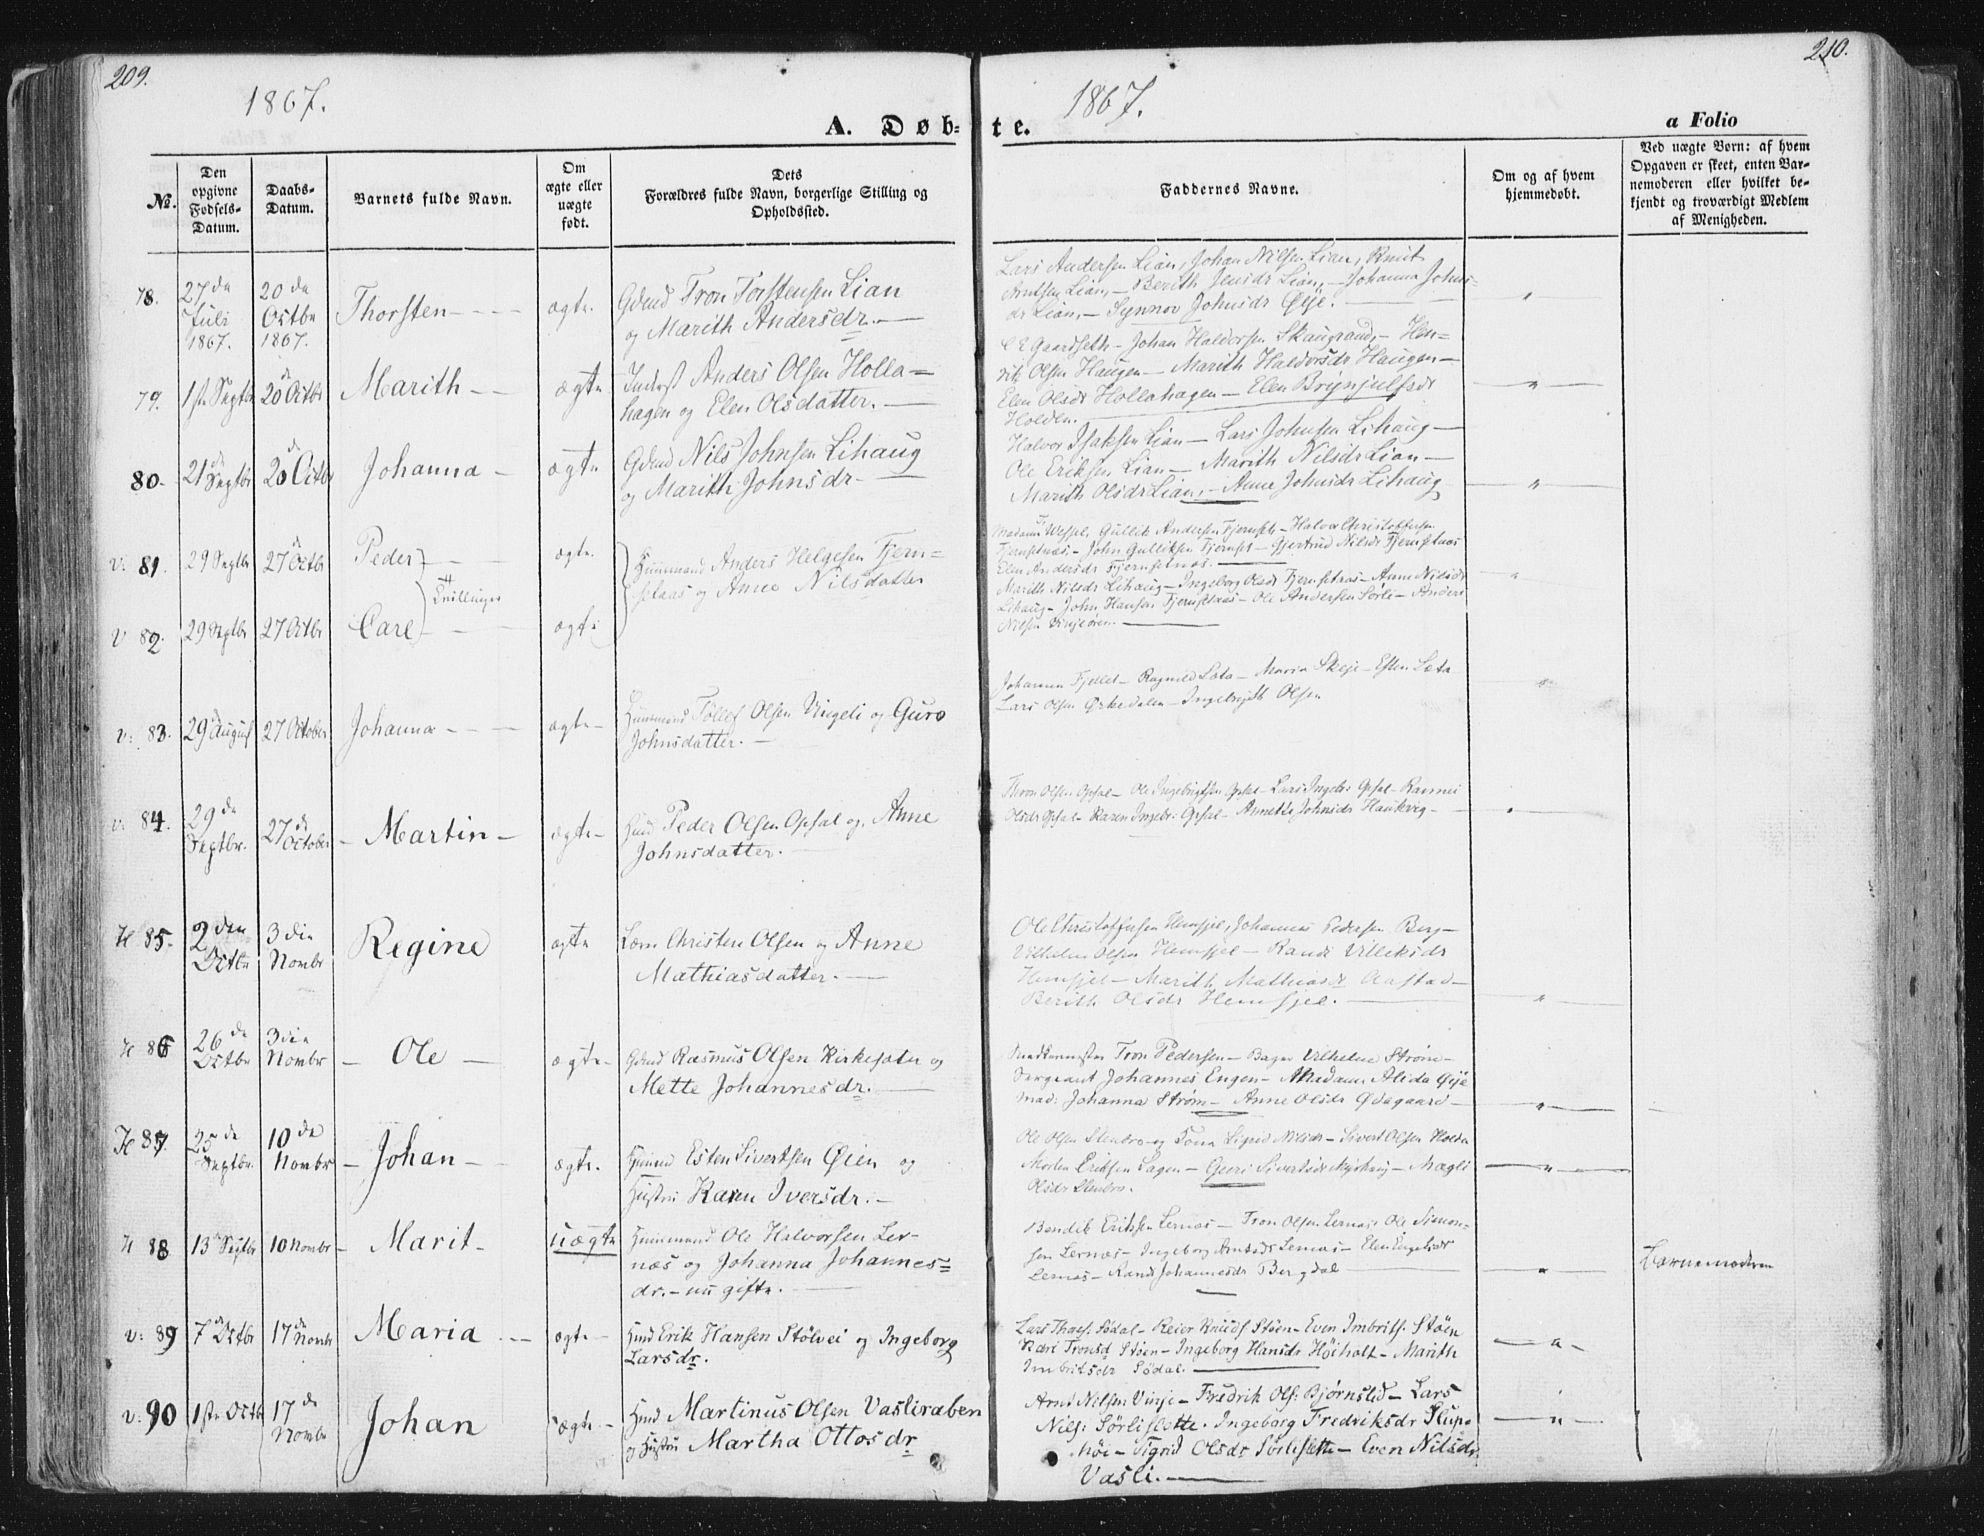 209.
210.
1867.
1867.
A. Døb-
te.
a Folio
No.
Den opgivne Fødsels-Datum.
Daabs-Datum.
Barnets fulde Navn.
Om ægte eller uægte født.
Dets Forældres fulde Navn, borgerlige Stilling og Opholdssted.
Faddernes Navne.
Om og af hvem hjemmedøbt.
Ved uægte Børn: af hvem Opgaven er skeet, enten Barnemoderen eller hvilket bekjendt og troværdigt Medlem af Menigheden.
78. 27de Juli 1867. 20de Octbr 1867. Thorsten ægte.
Gdmd Tron Torstensen Lian
og Marith Andersdr.
Lars Andersen Lian, Johan Nilsen Lian, Knut
Arntsen Lian, Berith Jensdr Lian, Johanna Johns-
dr Lian, Synnov Johnsdr Øye.
79. 1ste Septbr 20de Octbr Marith ægte
Inderst Anders Olsen Holla-
hagen og Elen Olsdatter.
Gaardseth - Johan Haldorsen Skaugrand, Hen-
rik Olsen Haugen - Marith Haldorsdr Haugen
Elen Olsdr Hollahagen - Elen Brynjulfsdr
Holden.
80. 21de Septbr 20de Octbr Johanna ægte
Gdmd Nils Johnsen Lihaug
og Marith Johnsdr.
Halvor Isaksen Lian - Lars Johnsen Lihaug
Ole Eriksen Lian - Marith Nilsdr Lian
Marith Olsdr Lian, Anne Johnsdr Lihaug
V: 81. 29 Septbr 27de Octbr Peder ægte.
Tvillinger
Huusmand Anders Helgesen Fjern-
setaas og Anne Nilsdatter
Madame Wessel, Gullik Andersen Fjernset - Halvor Christoffersen
Fjernsetaas - John Gulliksen Fjernset - Gjertrud Nilsdr Fjernsetaas
Elen Andersdr Fjernsetaas.
V 82 29 Septbr 27 Octbr Carl ægte
Marith Nilsdr Lihaug - Ingeborg Olsdr Fjernsetaas - Anne Nilsdr
Lihaug - John Hansen Fjernsetaas - Ole Andersen Sørli - Anders
Nilsen Vinjeøren.
V: 83. 29 August 27 October Johanna ægte
Huusmand Tollef Olsen Vingeli og Guro
Johnsdatter.
Johannes Fjellet - Ragnild Leta - Maria Skeje - Esten Leta
Lars Olsen Ørkedalen - Ingebrigt Olsen
V: 84. 29de Septbr. 27de October Martin ægte
Hmd Peder Olsen Opsal og Anne
Johnsdatter.
Thron Olsen Opsal - Ole Ingebrigtsen Opsal - Lars Ingebr. Opsal -
Olsdr Opsal - Karen Ingebr. Opsal - Annette Johnsdr Haukvig
H 85. 2den Octbr 3die Novmbr Regine ægte
Christen Olsen og Anne
Mathiasdatter.
Ole Christoffersen Hemsjel, Johannes Pedersen Berg
Vilhelm Olsen Hemsjel - Randi Villeksdr
Hemsjel - Marith Mathiasdr Aastad
Berith Olsdr Hemsjel.
H 86 26de Octbr 3die Novmbr Ole ægte
Gdmd Rasmus Olsen Kirkesæter og
Mette Johannesdr.
Tron Pedersen - Bager Vilhelm Strøm
Sergeant Johannes Engen - Madame Alida Øye
Mad: Johanna Strøm - Anne Olsdr Ødegaard
H 87. 25de Septbr. 10de Novmbr Johan ægte.
Hmd Esten Sivertsen Øien og
Hustru Karen Iversdr.
Ole Olsen Stenbro og Kona Sigrid Nilsdr - Sivert Olsen Holden
Morten Eriksen Lagen - Guri Sivertsdr - Magli
Olsdr Stenbro.
H 88 13de Septbr 10 Novmbr Marit uægte
Huusmand Ole Halvorsen Ler-
næs og Johanna Johannes-
dr. - nu gifte.
Bendik Eriksen Lernæs - Tron Olsen Lernæs Ole Simon-
sen Lernæs - Ingeborg Arntsdr Lernæs - Elen Engelsdr
Lernæs - Randi Johannesdr Bergdal
Barnemoderen
V: 89 7de Octbr 17de Novmbr Maria ægte
Hmd Erik Hansen Stølvei og Ingeborg
Larsdr.
Lars Sødal - Reier Knuds. Støen - Even Imbrits. Støen
Kari Tronsd Støen - Ingeborg Hansdr Høiholt - Marith
Imbritsdr Sødal.
V: 90 1ste Octb 17de Novmbr Johan ægte
Hmd Martinus Olsen Vasliraben
og Hustru Martha Ottosdr
Arnt Nilsen Vinje - Fredrik Ols: Bjørnslid - Lars
Nils: Sørlislette. Ingeborg Fredriksdr Slupe
Sigrid Olsdr Sørlislette - Even Nilsdr.
Vasli.